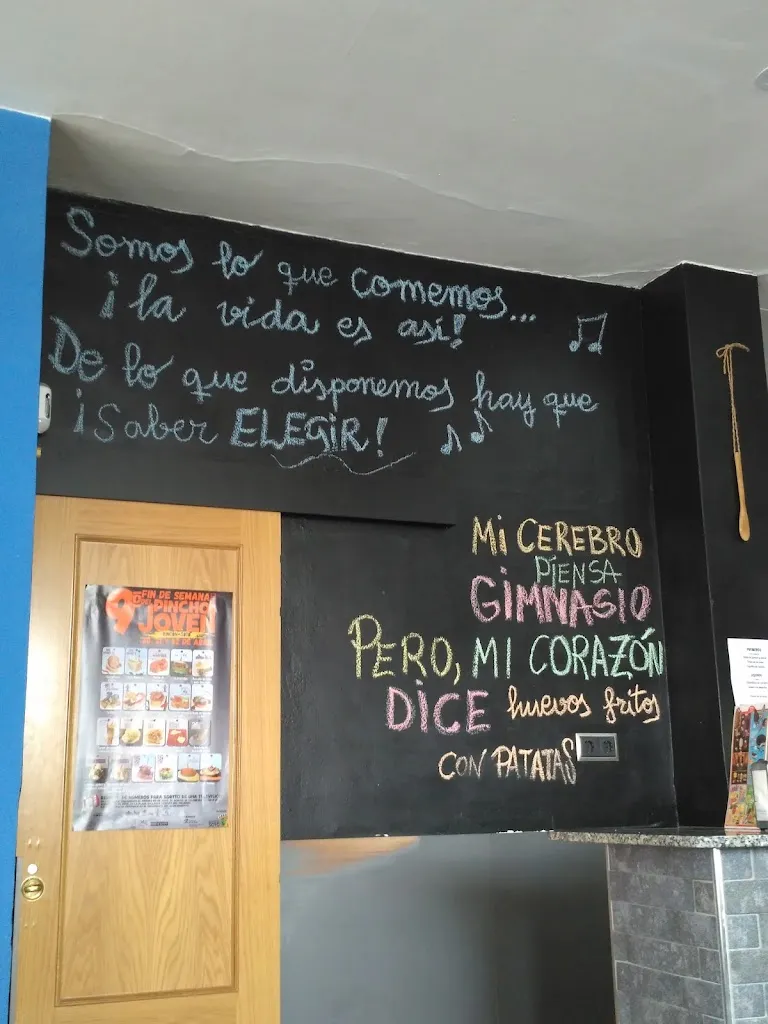 Somos lo que comemos...
¡la vida es así!
De lo que disponemos hay que
¡Saber ELEGIR!
Mi CEREBRO
PiENSA
GiMNASiO
PERO, Mi CORAZÓN
DiCE huevos fritos
CON PATATAS
9º FIN DE SEMANA
DEL PINCHO
JOVEN